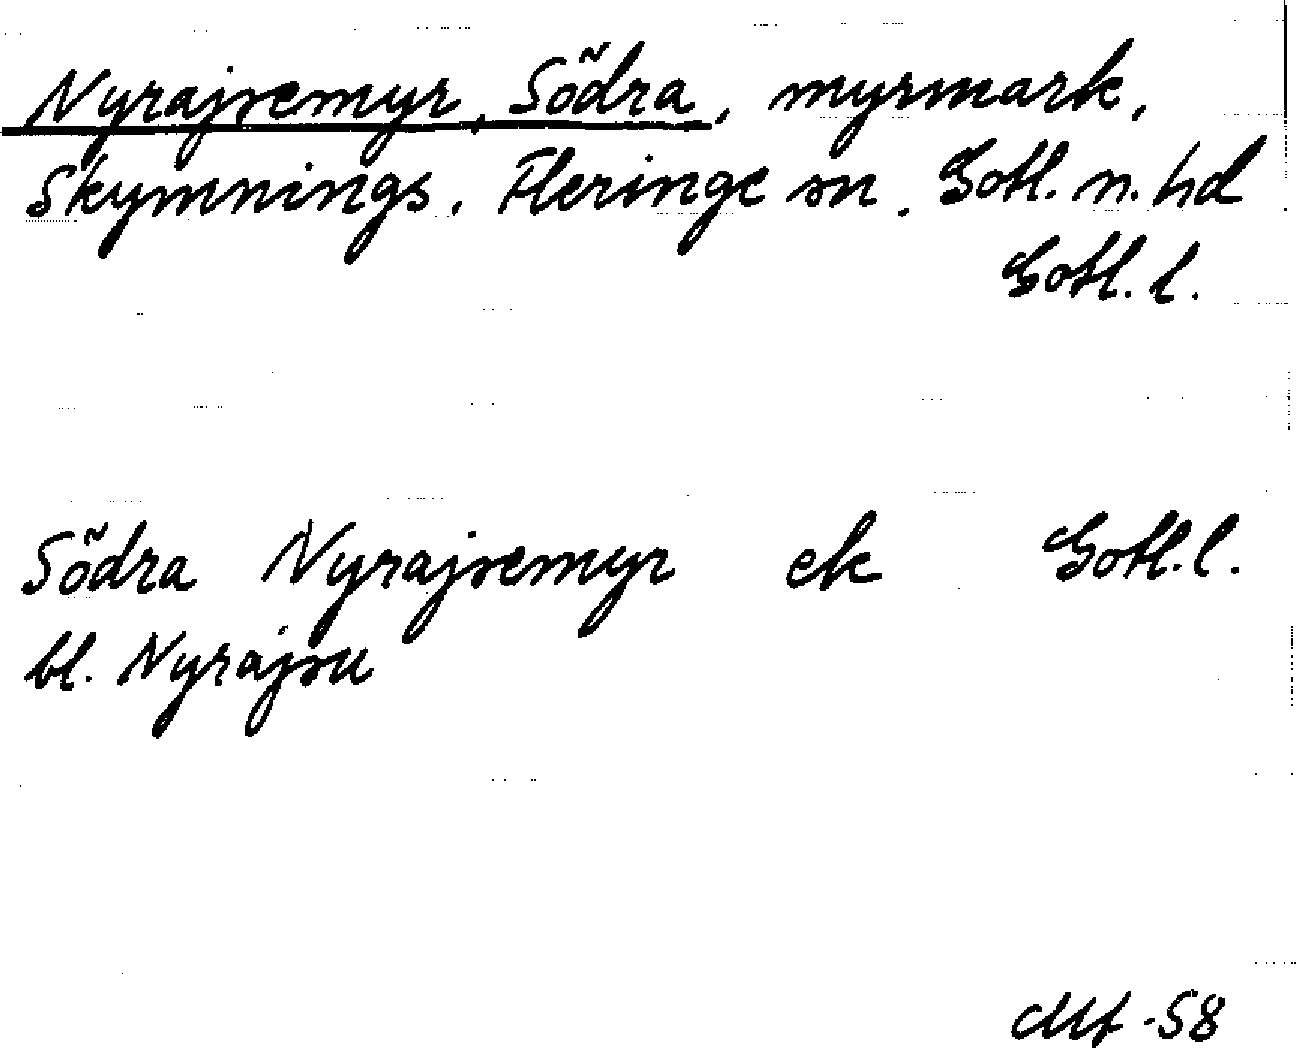 Nyrajsemyr, Södra, myrmark,
Skymnings, Fleringe sn. Gotl. n. hd
Gotl. l.
Södra Nyrajsemyr ek Gotl. l.
bl. Nyrajsu
-58